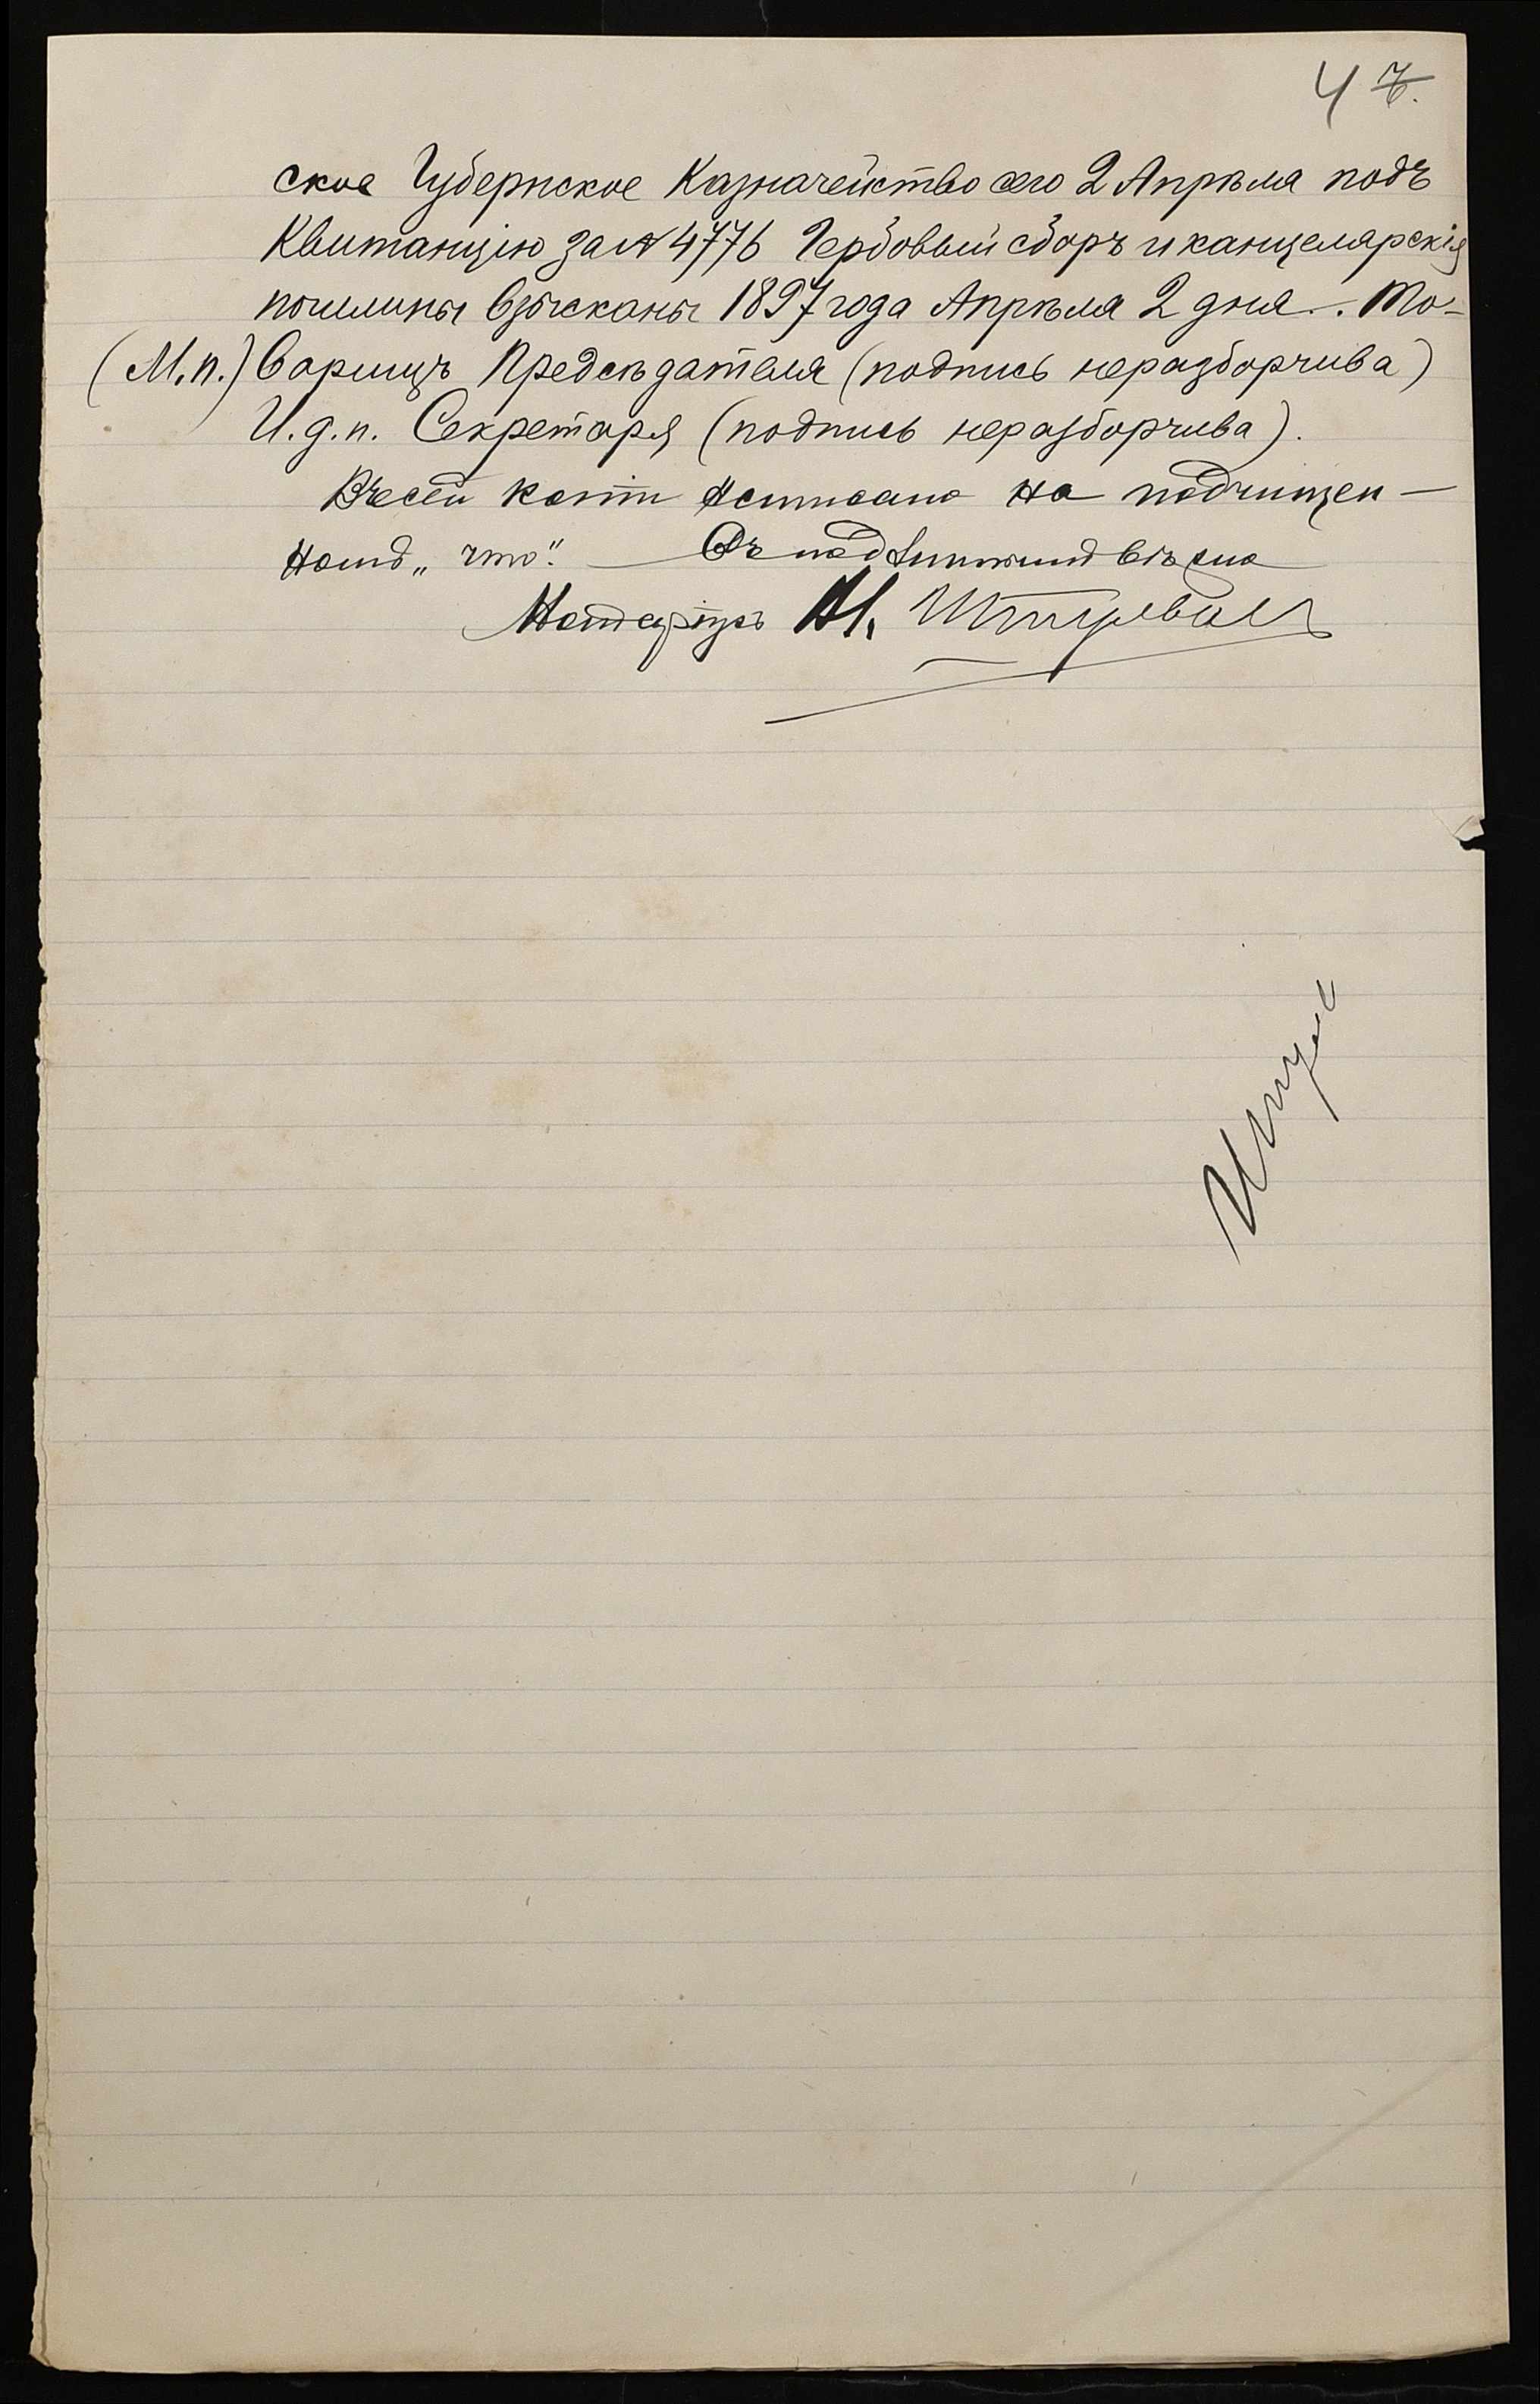 4 7.
ское Губернское Казначейство сего 2 Апрѣля подъ
Квитанцію за № 4776 Гербовый сборъ и канцелярскія
пошлины взысканы 1897 года Апрѣля 2 дня. То-
(М.п.) варищъ Предсѣдателя (подпись неразборчива)
И.д.п. Секретаря (подпись неразборчива).
Въ сей копіи написано на подчищен-
номъ „что“. Съ подлиннымъ вѣрна
Нотаріусъ Н.